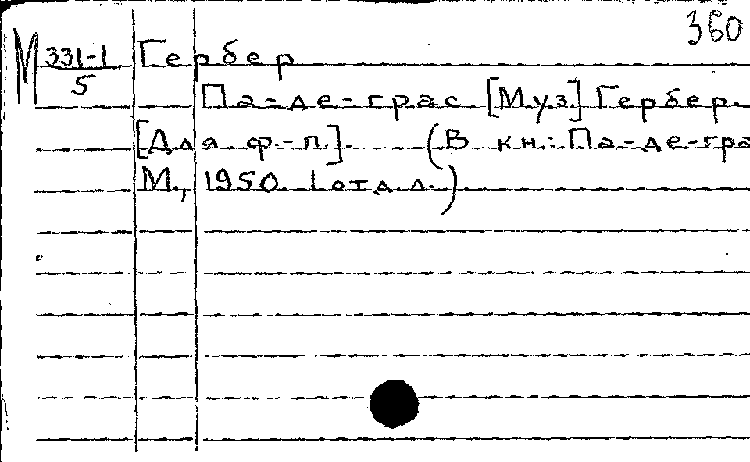 360
М 331-1/5 Гербер
Па-де-грас [Муз] Гербер.
[Для ф.-п.]. (В кн.: Па-де-гра
М., 1950. 1 отд. л.)